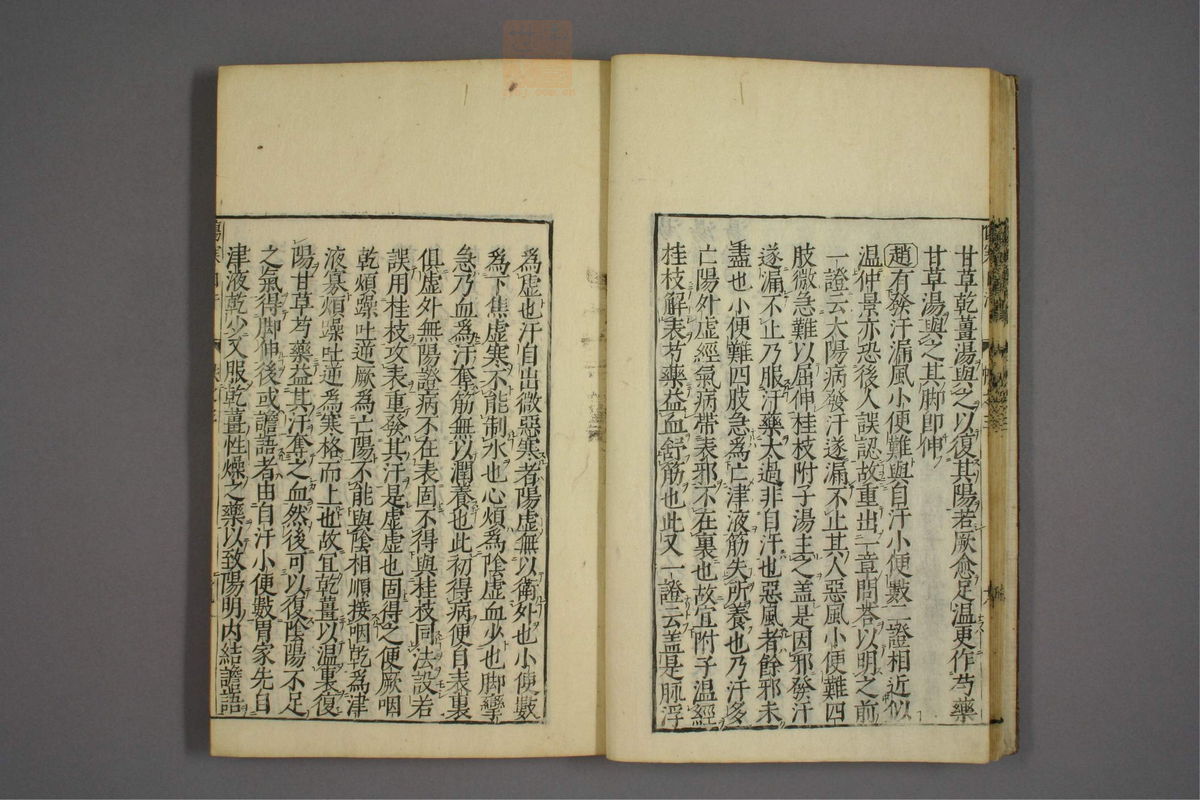 甘草乾薑湯與之以復其陽若厥愈足温更作芍藥
甘草湯與之其脚即伸
趙有發汗漏風小便難與自汗小便數二證相近似
温仲景亦恐後人誤認故重出一章問荅以明之前
一證云太陽病發汗遂漏不止其人惡風小便難四
肢微急難以屈伸桂枝附子湯主之盖是因邪發汗
遂漏不止乃服汗藥太過非自汗也惡風者餘邪未
盡也小便難四肢急為亡津液筋失所養也乃汗多
亡陽外虛經氣病帶表邪不在裏也故宜附子温經
桂枝解表芍藥益血舒筋也此又一證云盖是脉浮
為虛也汗自出微惡寒者陽虛無以衛外也小便數
為下焦虛寒不能制水也心煩為陰虛血少也脚攣
急乃血為汗奪筋無以潤養也此初得病便自表裏
俱虛外無陽證病不在表固不得與桂枝同法設若
誤用桂枝攻表重發其汗是虛虛也固得之便厥咽
乾煩躁吐逆厥為亡陽不能與陰相順接咽乾為津
液寡煩躁吐逆為寒格而上也故宜乾薑以温裏復
陽甘草芍藥益其汗奪之血然後可以復陰陽不足
之氣得脚伸後或譫語者由自汗小便數胃家先自
津液乾少又服乾薑性燥之藥以致陽明内結譫語